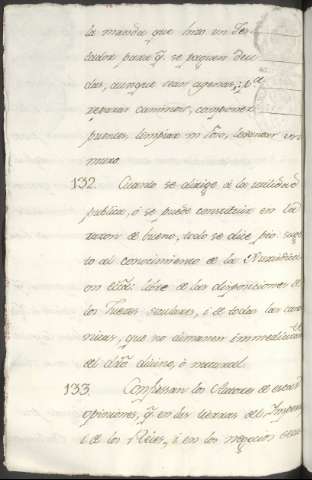 la manda que hizo un Tes-
tador para q. se paguen deu
das, aunque sean agenas,
reparar caminos, componer
puentes, limpiar un , levantar un
muro
132. Cuanto se dirige à la utilidad
publica, ò se puede constituir en la
razon de bueno, todo se dice pio suge
to al conocimiento de la Jurisdicci
on libre de las disposiciones de
los Jueces seculares, i de todas las
que no dimanen inmediatam.te
del dro divino, ò natural.
133. Confiessan los Autores de
opiniones, q. en las tierras del Imperio
i de los Reies, i en los negocios